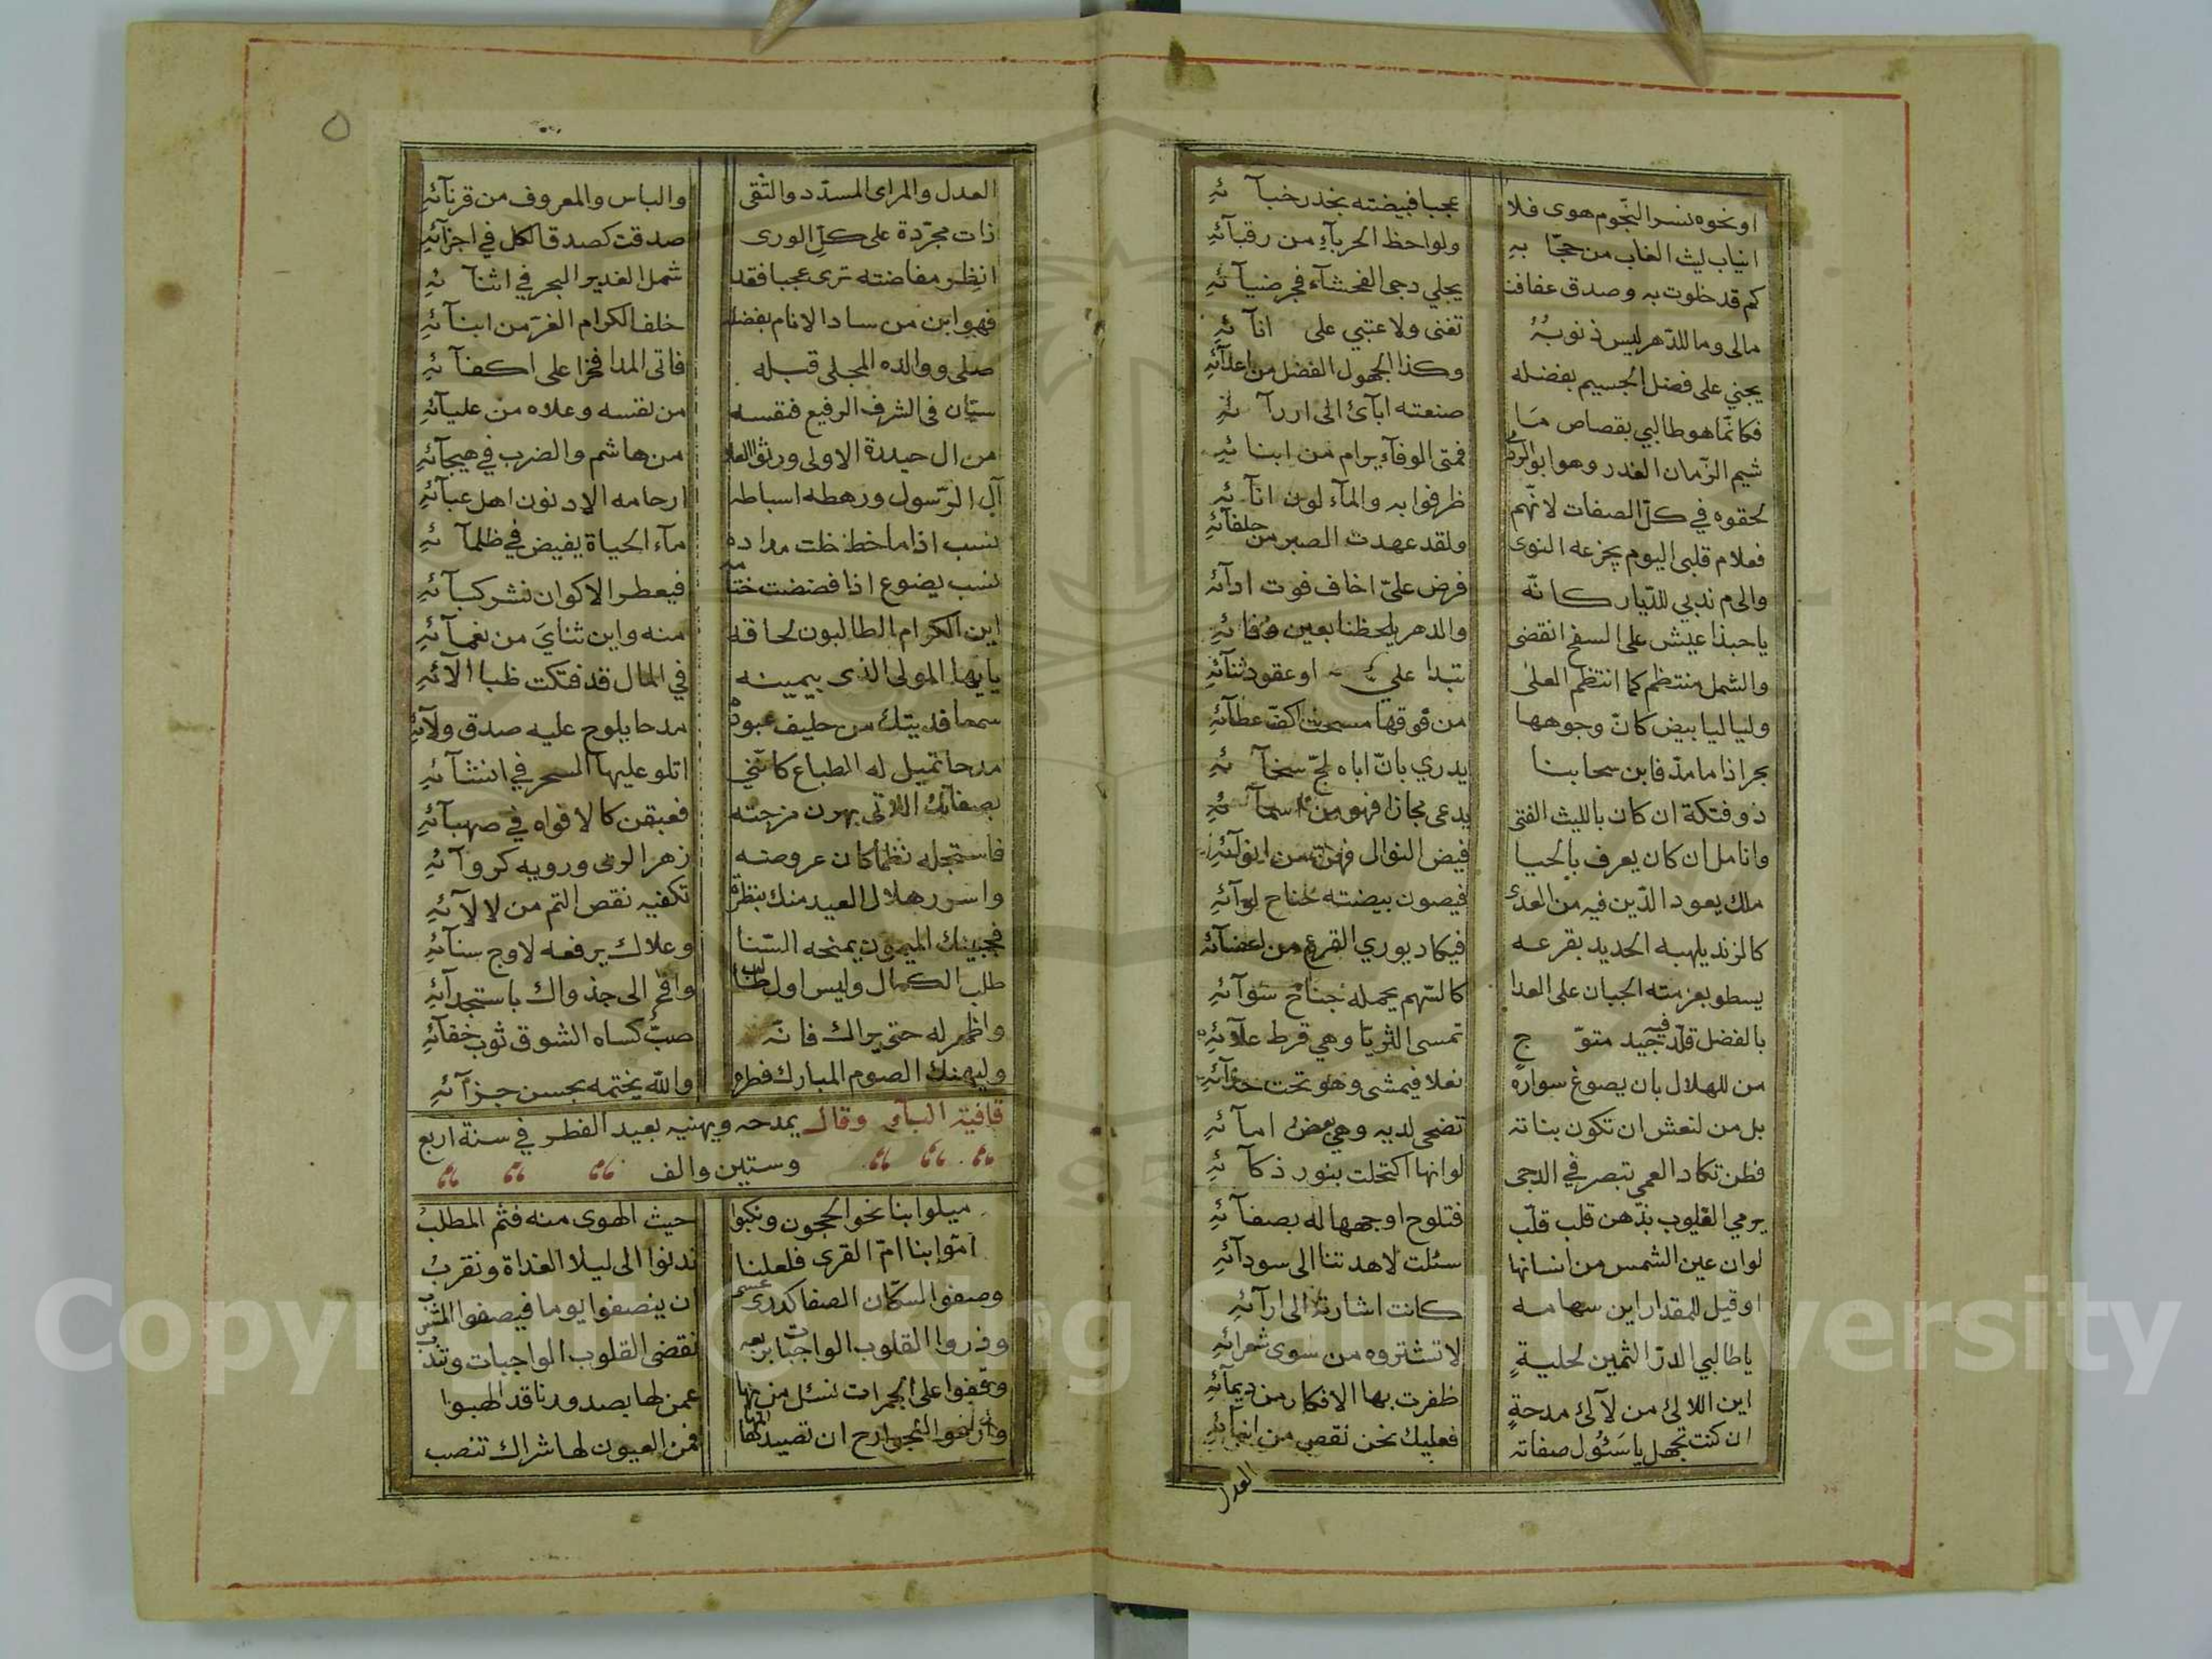 او نحوه نسر النجوم هوى فلا عجبا فبيضته بخدر خبآئهِ
انياب ليث الغاب من حجّابهِ ولواحظ الحربآءِ من رقبآئهِ
كم قد خلوت به وصدق عفافنا يجلي دجى الفحشآء فجر ضيآئهِ
مالى وما للدّهر ليس ذنوبُهُ تفنى ولا عتبي على انآئهِ
يجني على فضل الجسيم بفضله وكذا الجهول الفضل من اعدآئهِ
فكانّما هو طالبي بقصاص مَا صنعته ابآئ الى اررآئهِ
شيم الزّمان الغدر وهو ابو الورى فمتى الوفآء يرام من ابنائهِ
لحقوه في كلّ الصفات لانّهم ظرفوا به والمآء لون انآئهِ
فعلام قلبى اليوم يجزعه النوى ولقد عهدت الصبر من حلفآئهِ
والى م ندبي للدّيار كانّه فرض عليّ اخاف فوت ادآئهِ
ياحبذا عيش على السفح انقضى والدهر يلحظنا بعين وفائهِ
والشمل منتظم كما انتظم العلى بندا علي او عقود ثنآئهِ
ولياليا بيض كانّ وجوهها من فوقها مسحت اكفّ عطآئهِ
بحر اذا ما مدّ فابن سحابنا يدري بانّ اباه لجّ سخآئهِ
ذو فتكة ان كان بالليث الفتى يدعى مجازا فهو من اسمآئهِ
وانامل ان كان يعرف بالحيا فيض النوال فهن من انوآئهِ
ملك يعود الدّين فيه من العدى فيصون بيضته جناح لوآئهِ
كالزند يلهبه الحديد بقرعه فيكاد يوري القرع من اعضآئهِ
يسطو بعزمته الجبان على العدا كالسّهم يحمله جناح سوآئهِ
بالفضل قلّد فيه جيد متوّج تمسى الثريّا وهي قرط علآئهِ
من للهلال بان يصوغ سواره نعلا فيمشى وهو تحت حذآئهِ
بل من لنعش ان تكون بناته تضحى لديه وهي بعض امآئهِ
فطن تكاد العمي تبصر في الدجى لو انها اكتحلت بنور ذكآئهِ
يرمي القلوب بذهن قلب قلّب فتلوح اوجهها له بصفآئهِ
لو ان عين الشمس من انسانها سئلت لاهدتنا الى سودآئهِ
او قيل للمقدار اين سهامه كانت اشارته الى ارآئهِ
يا طالبي الدرّ الثمين لحليةٍ لا تشتروه من سوى شعرائهِ
اين اللالئ من لآلئ مدحةٍ ظفرت بها الافكار من ديمآئهِ
ان كنت تجهل يا سَئول صفاته فعليك نحن نقص من انبآئهِ
العدل
٥
العدل والراى المسدّد والتّقى والباس والمعروف من قرنآئهِ
ذات مجرّدة على كلّ الورى صدقت كصدق الكل في اجزآئهِ
انظر مفاضته ترى عجبا فقد شمل الغدير البحر في اثنآئهِ
فهو ابن من ساد الانام بفضله خلف الكرام الغرّ من ابنآئهِ
صلى ووالده المجلى قبله فاتى المدا فخرا على اكفآئهِ
سيّان فى الشرف الرفيع فنفسه من نفسه وعلاه من عليآئهِ
من ال حيدرة الاولى ورثوا العلا من هاشم والضرب في هيجآئهِ
آل الرّسول ورهطه اسباطه ارحامه الادنون اهل عبآئهِ
نسب اذا ما خط خلت مداده مآء الحياة يفيض في ظلمآئهِ
نسب يضوع اذا فضضت ختامه فيعطر الاكوان نشر كبآئهِ
اين الكرام الطالبون لحاقه منه واين ثنايَ من نعمآئهِ
يايها المولى الذى بيمينه في المال قد فتكت ظبا الآئهِ
سمعا فديتك من حليف عبودة مدحا يلوح عليه صدق ولآئهِ
مدحا تميل له الطباع كانّني اتلو عليها السحر في انشآئهِ
بصفاتك اللاتى بهرن مزجته فعبقن كالافواه في صهبآئهِ
فاستجله نظما كان عروضه زهر الربى ورويه كروآئهِ
واسرر هلال العيد منك بنظرة تكفيه نقص التم من لالآئهِ
فجبينك الميمون يمنحه السّنا وعلاك يرفعه لاوج سنآئهِ
طلب الكمال وليس اول طالب وافى الى جذواك باستجدآئهِ
واظهر له حتى يراك فانّه صبّ كساه الشوق ثوب خفآئهِ
وليهنك الصوم المبارك فطره والله يختمه بحسن جزآئهِ
قافية البآء وقال يمدحه ويهنيه بعيد الفطر في سنة اربع
وستين والف
ميلوا بنا نحو الحجون ونكبوا حيث الهوى منه فثم المطلبُ
امّوا بنا امّ القرى فلعلنا ندنوا الى ليلا الغداة ونقربُ
وصفوا لسكّان الصفا كدرى عسى ان ينصفوا يوما فيصفوا المشرب
وذروا القلوب الواجبات بربعه نقضى القلوب الواجبات وتندب
وقفوا على الجمرات نسئل من بها عمن لها بصدورنا قد الهبوا
الجوارح ان تصيد فمن العيون لها شراك تنصب